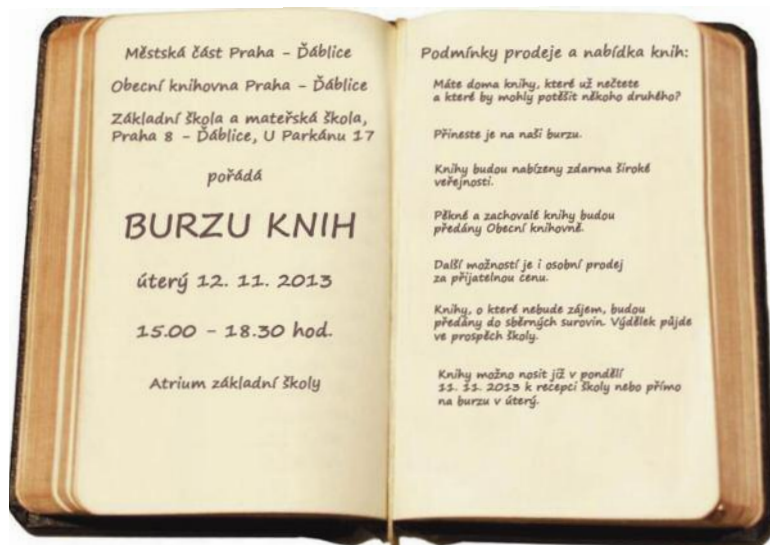 Městská část Praha - Ďáblice
Obecní knihovna Praha - Ďáblice
Základní škola a mateřská škola,
Praha 8 - Ďáblice, U Parkánu 17
pořádá
BURZU KNIH
úterý 12. 11. 2013
15.00 - 18.30 hod.
Atrium základní školy
Podmínky prodeje a nabídka knih:
Máte doma knihy, které už nečtete
a které by mohly potěšit někoho druhého?
Přineste je na naši burzu.
Knihy budou nabízeny zdarma široké
veřejnosti.
Pěkné a zachovalé knihy budou
předány Obecní knihovně.
Další možností je i osobní prodej
za přijatelnou cenu.
Knihy, o které nebude zájem, budou
předány do sběrných surovin. Výdělek půjde
ve prospěch školy.
Knihy možno nosit již v pondělí
11. 11. 2013 k recepci školy nebo přímo
na burzu v úterý.